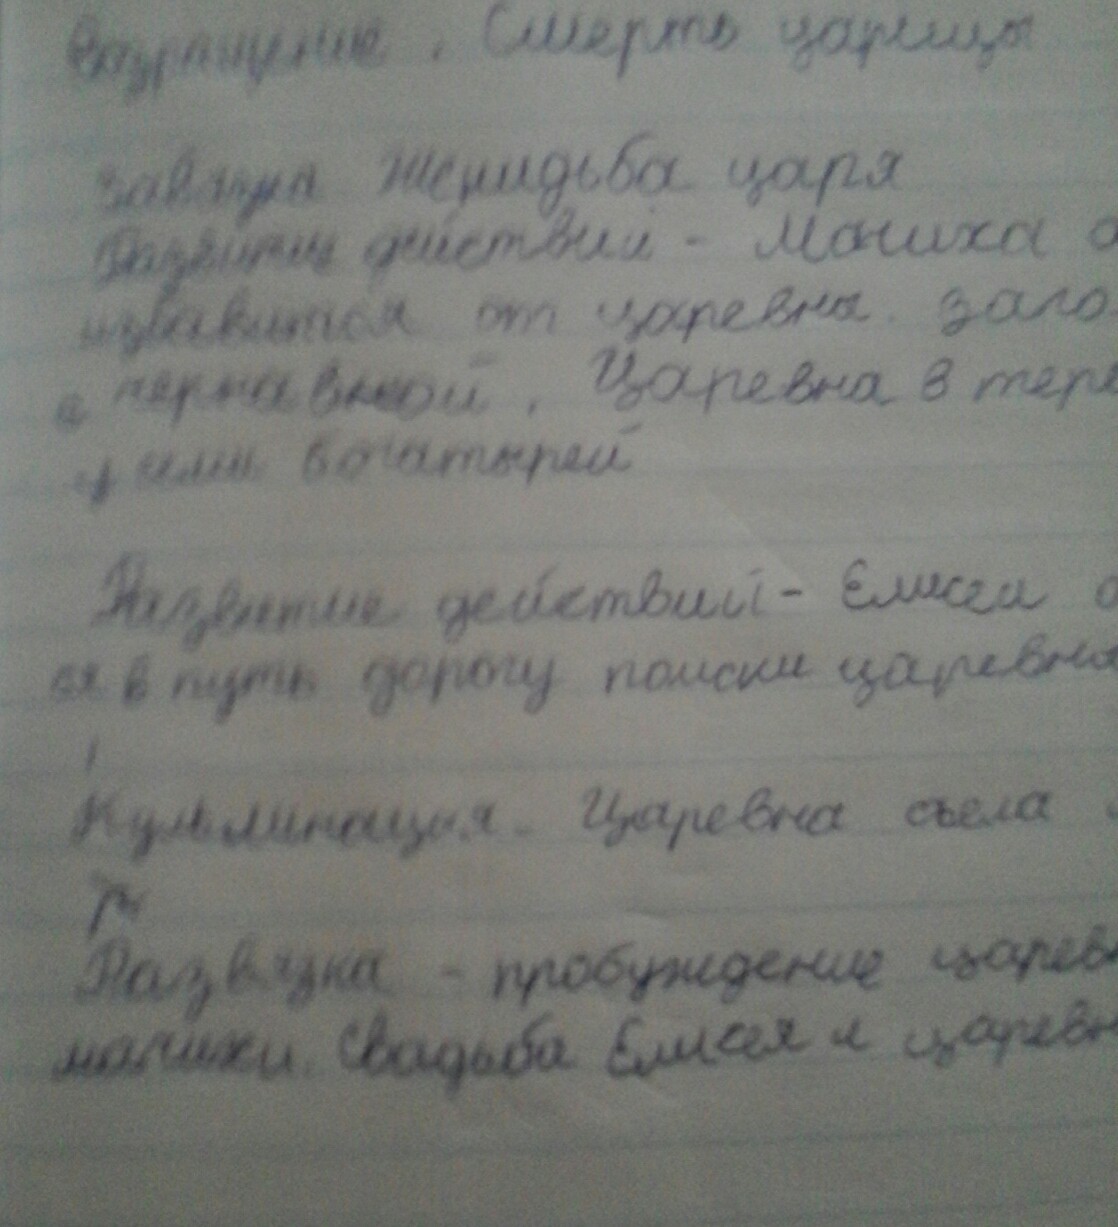 Возращение. Смерть царицы
Завязка Женидьба царя
Развитие действий - Мачиха
избавится от царевны.
чернавкой. Царевна в тере
у семи богатырей
Развитие действий - Елисей о
ся в путь дорогу поиски царевны
Кульминация. Царевна съела
Развязка - пробуждение царевн
мачихи. Свадьба Елисея и царевн